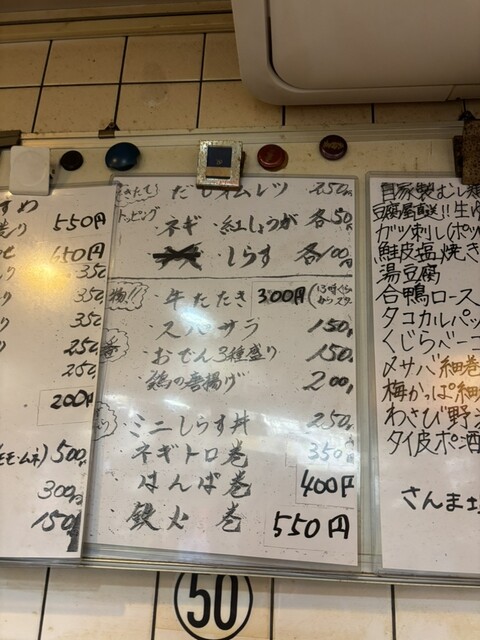 すめ
550円
650円
350
350
250
250
200円
500円
300円
150
だしオムレツ 250円
トッピング
ネギ・紅しょうが 各50円
しらす 各100円
牛たたき 300円
スパサラ 150円
おでん3種盛り 150円
鶏の唐揚げ 200円
ミニしらす丼 250円
ネギトロ巻 350円
はんぱ巻 400円
鉄火巻 550円
自家製むし鶏
ガツ刺し(ポッ
鮭皮塩焼き
湯豆腐
合鴨ロース
タコカルパッ
くじらベーコ
〆サバ細巻
梅かっぱ細
わさび野
タイ皮ポン酢
さんま
50